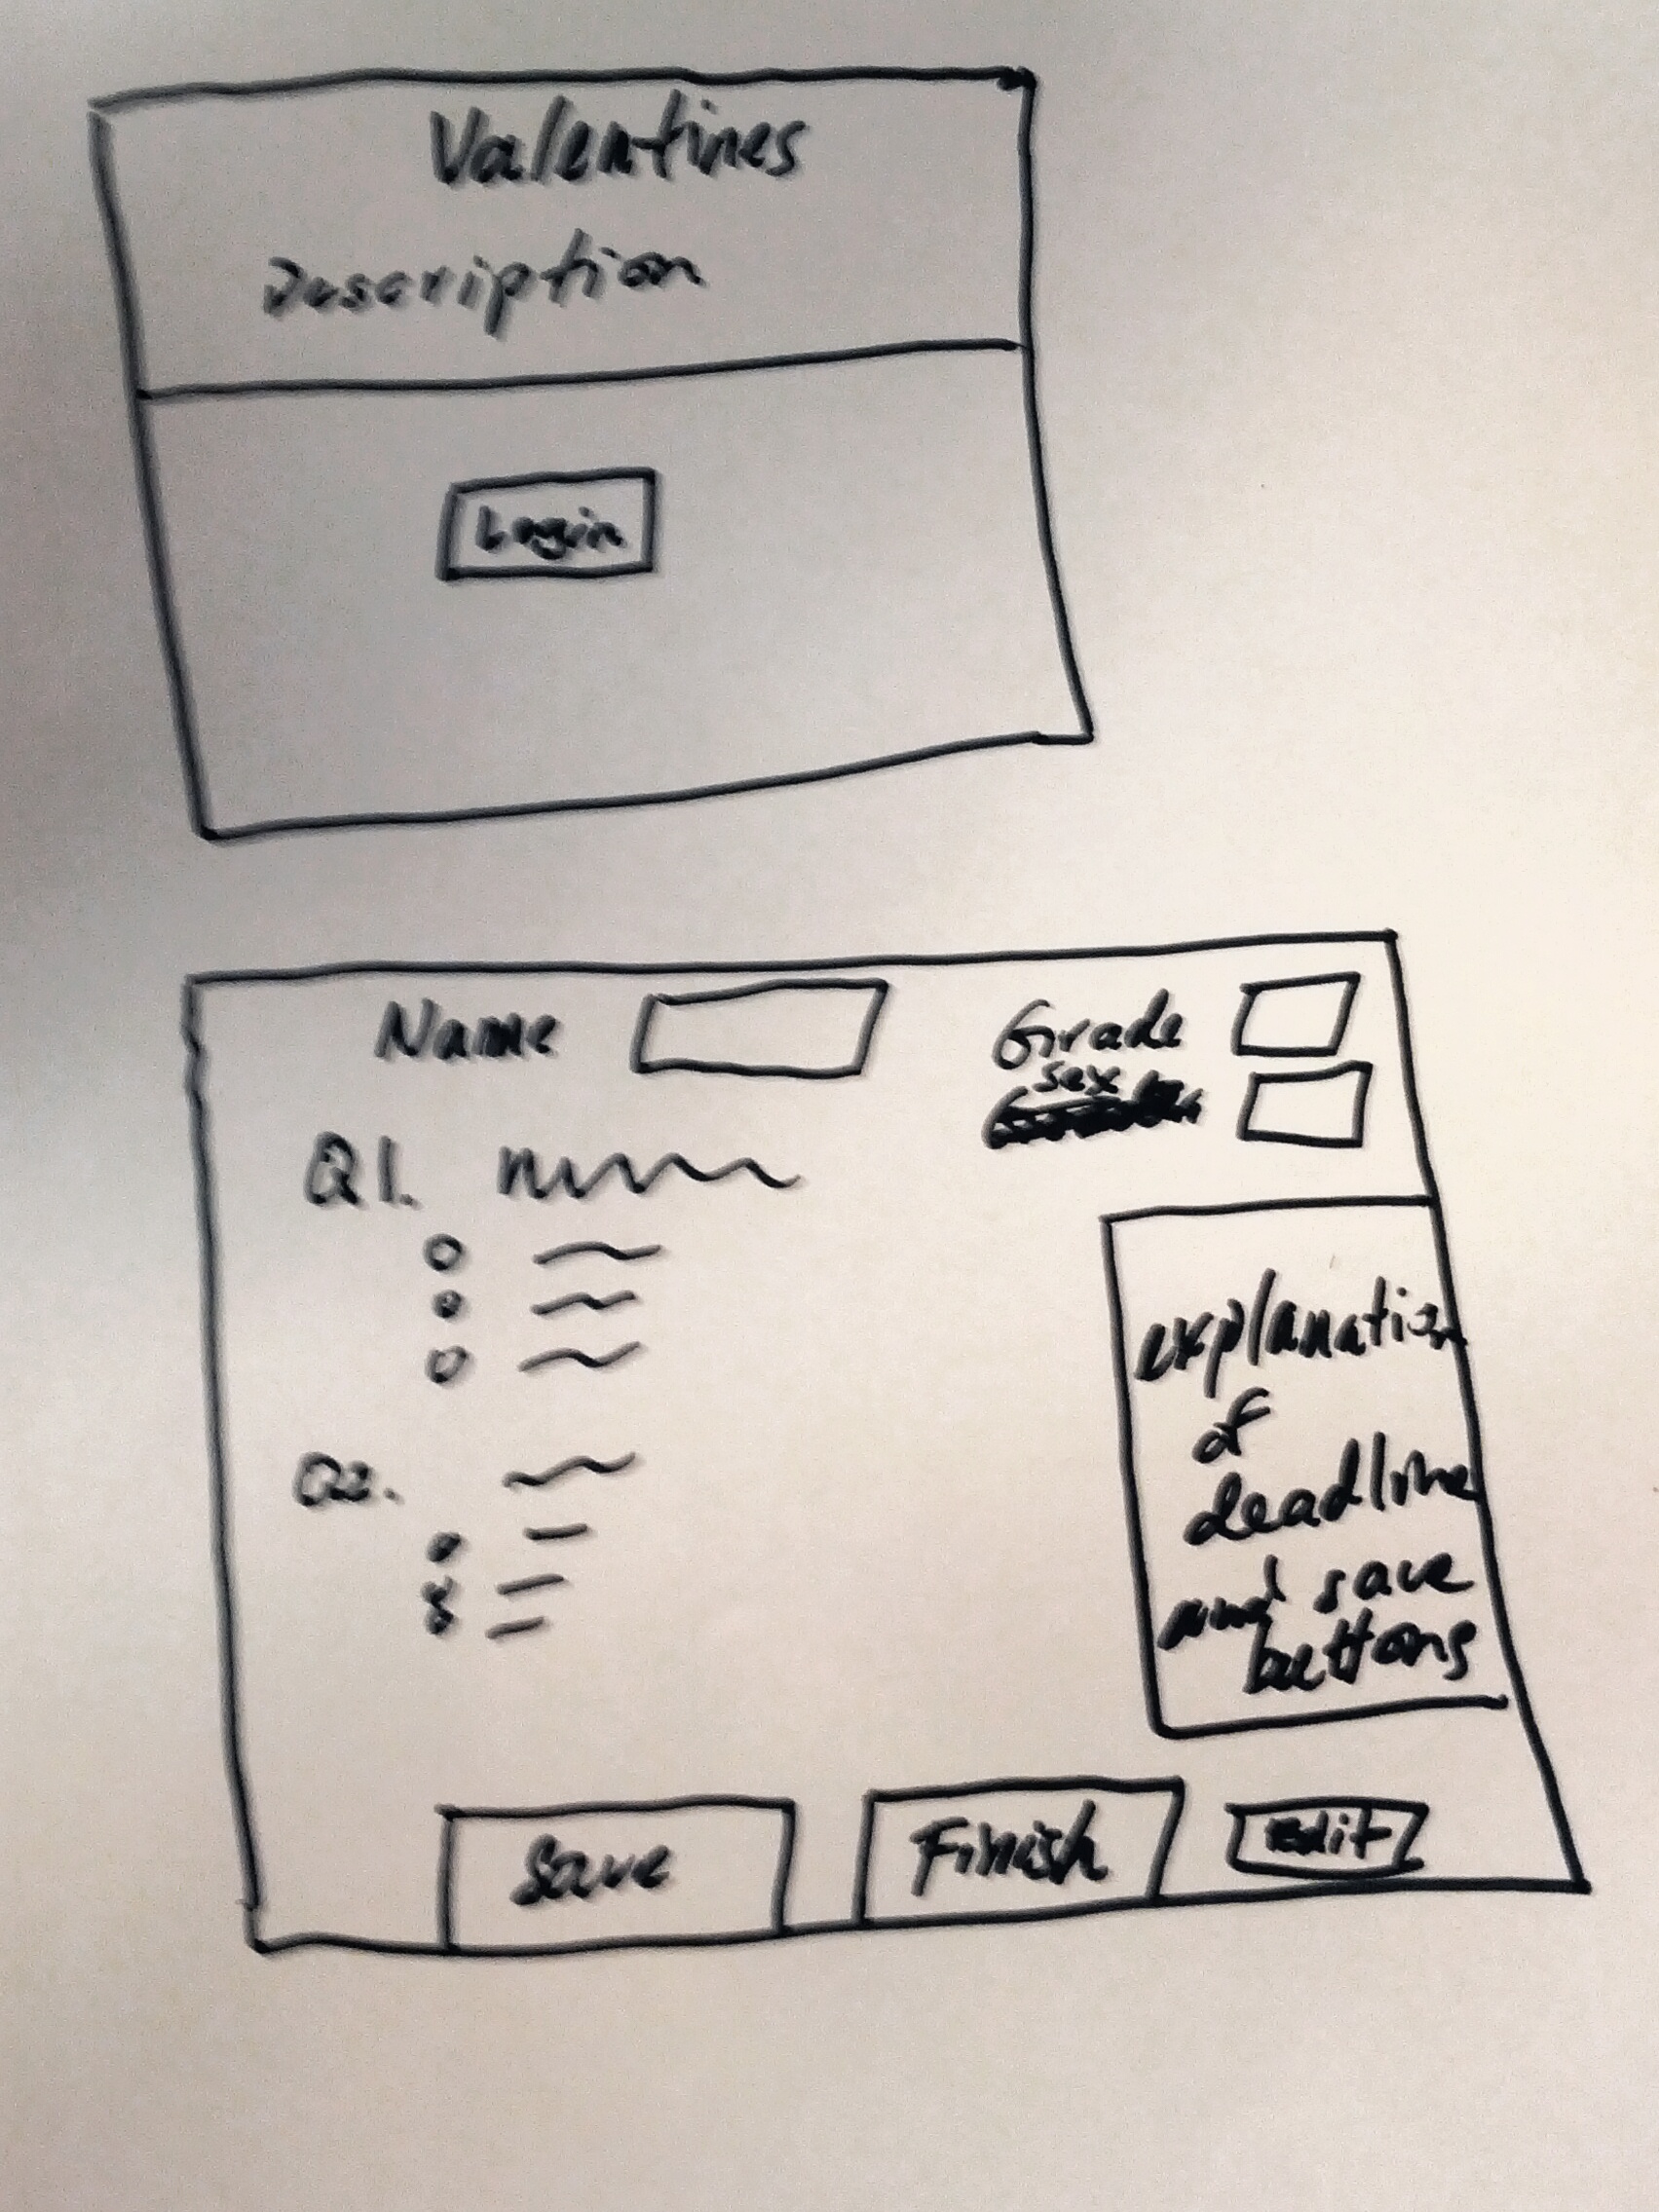 Valentines
Description
Login
Name
Grade
sex
Q1.
Q2.
explanation
of
deadline
and save
buttons
Save
Finish
Edit